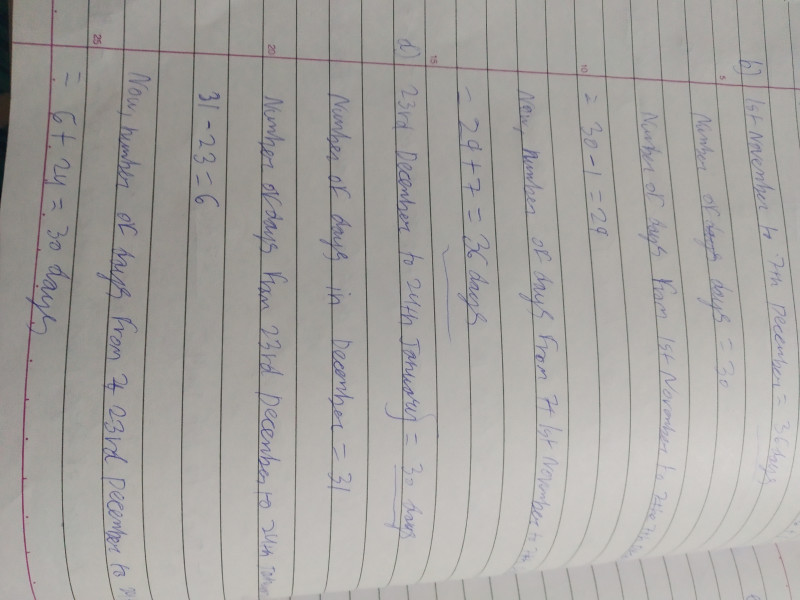 b) 1st November to 7th December = 36 days
Number of days = 30
Number of days from 1st November to
= 30 - 1 = 29
Now, number of days from 1st November to
= 29 + 7 = 36 days
d) 23rd December to 24th January = 30 days
Number of days in December = 31
Number of days from 23rd December to 24th
31 - 23 = 6
Now, number of days from 23rd December to
= 6 + 24 = 30 days
5
10
15
20
25